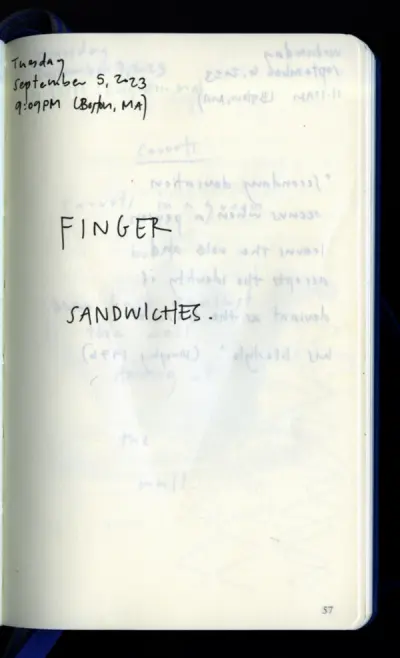 Tuesday
September 5, 2023
9:09PM (Boston, MA)
FINGER
SANDWICHES.
57